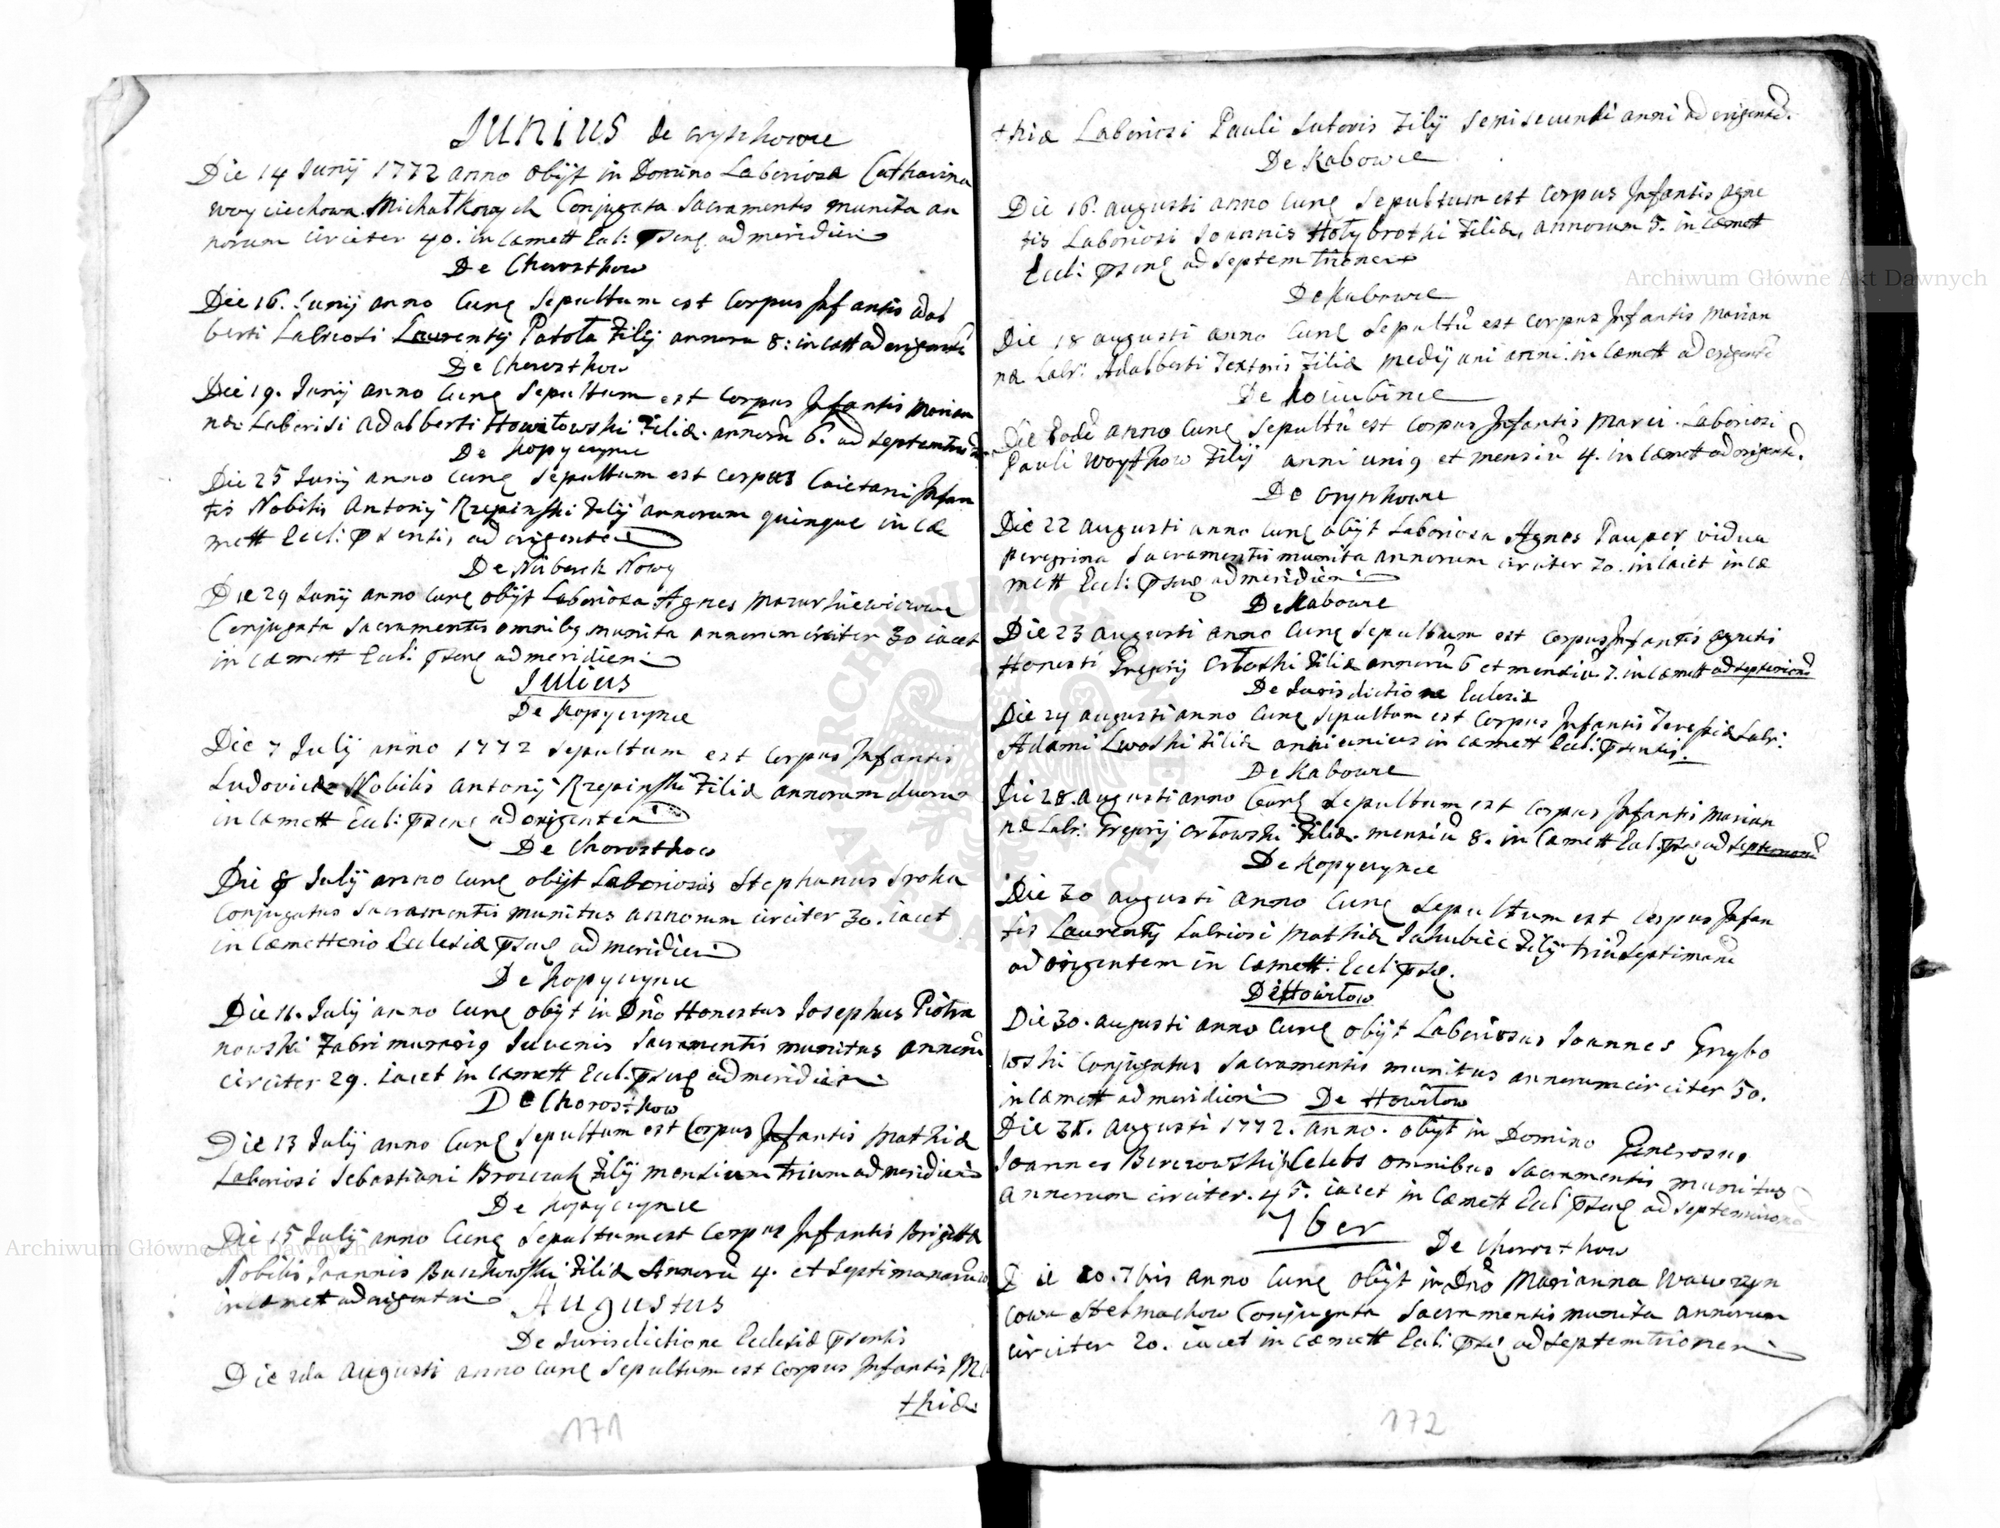 Junius de oryszkowce
Die 14 Junij 1772 anno obijt in Domino Laboriosa Catharina
woyciechowa Michałkowych Conjugata Sacramentis munita an
norum circiter 40. in Cæmett Eccl: pseng ad meridiem
De Chorosthow
Die 16. Junij anno Curг Sepultum est Corpus Infantis adal
berti Labriosi Laurentij Patoła Filij annoru 8: in Cætt ad origente
De Chorosthow
Die 19. Junij anno Curr Sepultum est Corpus Infantis Marian
næ Laboriosi Adalberti Howiłowski Filiæ annorũ 6. ad septemtrio
De Kopyczynce
Die 25 Junij anno Curr Sepultum est Corpus Caietani Infan
tis Nobilis Antonij Rzepinski Filij annorum quinque in Cæ
mett Eccl: psentis, ad origentem
De Niiborek Nowy
Die 29 Junij anno Curr obijt Laboriosa Agnes Mazurkiewiczowa
Conjugata Sacramentis omnibq munita annorum circiter 30 iacet
in Cæmett Eccl: pseng ad meridiem
Julius
De Kopyczynce
Die 7 Julij anno 1772 Sepultum est Corpus Infantis
Ludovicæ Nobilis Antonij Rzepinski Filiæ annorum duorum
in Cæmett Eccl: pseng ad origentem
De Chorosthow
Die 8 Julij anno Curr obijt Laboriosus Stephanus Sroka
Conjugatus Sacramentis munitus annorum circiter 30. iacet
in Cæmetterio Ecclesiæ pseng ad meridiem
De Kopyczynce
Die 11. Julij anno Curr obijt in Dño Honestus Josephus Piotra
nowski Fabri murariq Juvenis Sacramentis munitus annorũ
circiter 29. iacet in Cæmett Eccl: pseng ad meridiem
De Chorosthow
Die 13 Julij anno Curr Sepultum est Corpus Infantis Mathiæ
Laboriosi Sebastiani Browczak Filij mensium trium ad meridiem
De Kopyczynce
Die 15 Julij anno Curr Sepultum est Corpus Infantis Brigittæ
Nobilis Joannis Buczkowski Filiæ Annorũ 4. et Septimanarũ
in Cæmett ad origentem Augustus
De Jurisdictione Ecclesiæ psentis
Die 2da Augusti anno Curr Sepultum est Corpus Infantis Ma
thiæ
171
thiæ Laboriosi Pauli Sutoris Filij Semisecundi anni ad origentẽ.
De Kabowce
Die 16. augusti anno Curr Sepultum est Corpus Infantis Agne
tis Laboriosi Joannis Hołybrothi Filiæ, annorum 5. in Cæmett
Eccl: pseng ad septemtrionem
De Kabowce
Die 18 augusti anno Curr Sepultũ est Corpus Infantis Marian
næ Labr: Adalberti Textoris Filiæ medij uni anni in Cæmett ad origentẽ
De Kociubince
Die Eodẽ anno Curr Sepultũ est Corpus Infantis Marci Laboriosi
Pauli Woythow Filij anni uniq et mensiũ 4. in Cæmett ad origentẽ.
De Oryszkowce
Die 22 augusti anno Curr obijt Laboriosa Agnes Pauper vidua
peregrina Sacramentis munita annorum circiter 70. iacet in Cæ
mett Eccl: pseng ad meridiem
De Kabowce
Die 23 augusti anno Curr Sepultum est Corpus Infantis
Honesti Gregorij Orłowski Filiæ annorũ 6 et mensiũ 7. in Cæmett ad septemtrionẽ
De Jurisdictione Eclesiæ
Die 24 augusti anno Curr Sepultum est Corpus Infantis Teressiæ Labr:
Adami Lwoski Filiæ anni unius in Cæmett Eccl: psentis.
De Kabowce
Die 28. augusti anno Curr Sepultum est Corpus Infantis Marian
næ Labr: Gregorij Orłowski Filiæ. mensiũ 8. in Cæmett Eccl: pseng ad septemtrionẽ
De Kopyczynce
Die 30 augusti anno Curr Sepultum est Corpus Infan
tis Laurentij Labriosi Mathiæ Jakubiec Filij triũ Septimanũ
ad origentem in Cæmett: Eccl: pseng.
De Howiłow
Die 30. augusti anno Curr obijt Laboriosus Joannes Grzybo
woski Conjugatus Sacramentis munitus annorum circiter 50.
in Cæmett ad meridiem De Howiłow
Die 31. Augusti 1772. anno. obijt in Domino Generosus
Joannes Berezowski Celebs omnibus Sacramentis munitus
annorum circiter. 45. iacet in Cæmett Eccl: pseng ad septemtrionẽ
7ber
De Chorosthow
Die 20. 7bris anno Curr obijt in Dño Marianna Wawrzyn
cowa Stelmachow Conjugata Sacramentis munita annorum
circiter 20. iacet in Cæmett Eccl: pseng ad septemtrionem
172
Archiwum Główne Akt Dawnych
Archiwum Główne Akt Dawnych